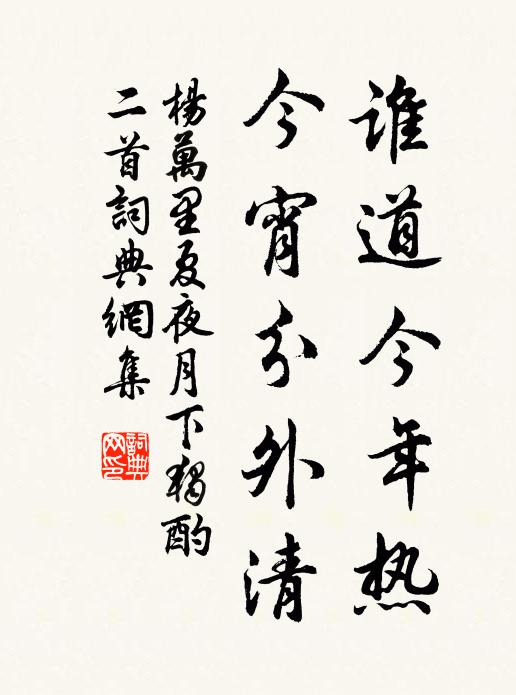 谁道今年热
今宵分外清
楊萬里夏夜月下獨酌
二首詞典網集
詞典
网印